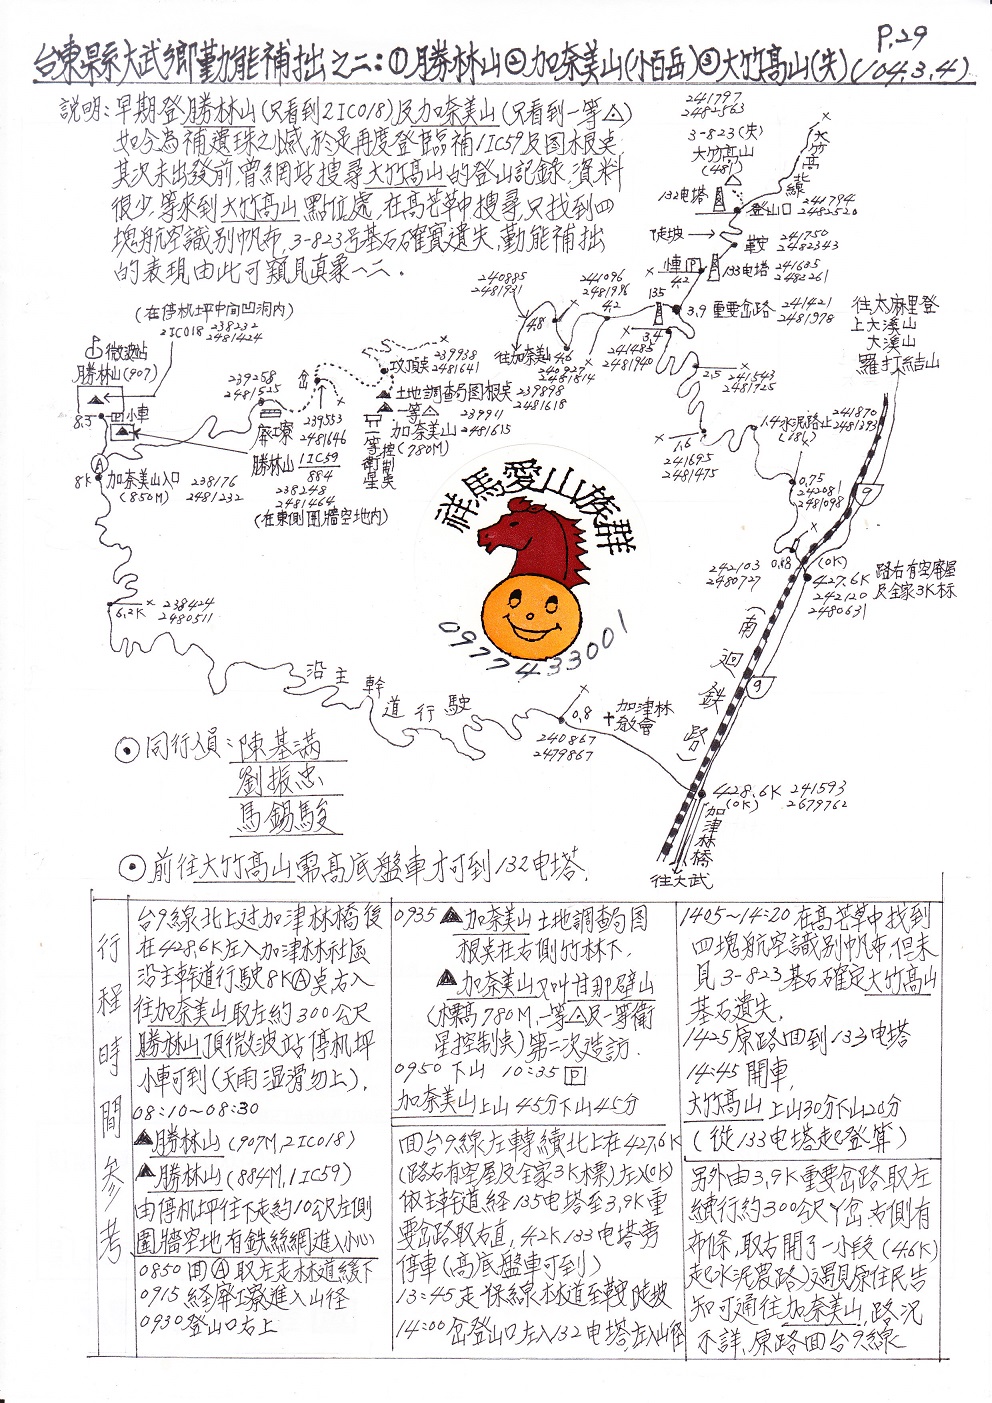 P.29
台東縣大武鄉勤能補拙之二:①勝林山②加奈美山(小百岳)③大竹高山(失)(104.3.4)
說明:早期登勝林山(只看到2IC018)及加奈美山(只看到一等△)
如今為補遺珠之憾於是再度登臨補1IC59及图根桌.
其次未出發前,曾網站搜尋大竹高山的登山記錄,資料
很少,等來到大竹高山點位處,在高芒草中搜尋,只找到四
塊航空識別帆布,3-823号基石確實遺失,勤能補拙
的表現由此可窺見真象一二.
241797
2482563
3-823(失)
大竹高山
(481)
132电塔
登山口
241794
2482520
大竹高
北線
陡坡
鞍
241750
2482343
小車P
4.2
133电塔
241635
2482261
135
3.9
重要岔路
241421
2481978
3.4
241485
2481940
241096
2481996
4.2
240885
2481931
4.8
往加奈美山
4.6
240927
2481814
2.5
241543
2481725
往太麻里登
上大溪山
大溪山
羅打結山
1.4水泥路止
(18K)
241870
2481293
1.6
241695
2481475
0.75
242081
2481098
9
242103
2480727
0.88
(0K)
427.6K
242120
2480631
路右有空廢屋
及全家3K标
(南迴鉄路)
9
(在停机坪中間凹洞内)
2IC018
238232
2481424
微波站
勝林山(907)
8.5
小車
A
8K
加奈美山入口
(850M)
238176
2481232
239258
2481525
廢工寮
岔
239553
2481646
勝林山
1IC59
884
238248
2481464
(在東側圍牆空地内)
攻頂桌
239938
2481641
土地調查局图根桌
239898
2481618
一等△
239911
2481615
加奈美山
(780M)
一等衛星
控制桌
祥馬愛山族群
0977433001
6.2K
238424
2480511
沿主幹道行駛
0.8
240867
2479867
加津林
教會
428.6K
(0K)
241593
2679762
加津林橋
往大武
⊙同行人員:陳基滿
劉振忠
馬錫駿
⊙前往大竹高山需高底盤車才可到132电塔.
行程時間參考
台9線北上过加津林橋後
在428.6K左入加津林社區
沿主幹道行駛8KⒶ桌右入
往加奈美山取左約300公尺
勝林山頂微波站停机坪
小車可到(天雨湿滑勿上).
08:10~08:30
▲勝林山(907M,2IC018)
▲勝林山(884M,1IC59)
由停机坪往下走約10公尺左側
圍牆空地有鉄絲網進入小心
0850回Ⓐ取左走林道緩下
0915経廢工寮進入山径
0930登山口右上
0935▲加奈美山土地調查局图
根桌在右側竹林下.
▲加奈美山又叫甘那壁山
(標高780M,一等△及一等衛
星控制桌)第二次造訪.
0950下山 10:35 P
加奈美山上山45分下山45分
回台9線左轉續北上在427.6K
(路右有空屋及全家3K標)左入(0K)
依主幹道経135电塔至3.9K重
要岔路取右直,4.2K133电塔旁
停車(高底盤車可到)
13:45走保線林道至鞍陡坡
14:00岔登山口左入132电塔,左入山径
1405~14:20在高芒草中找到
四塊航空識別帆布,但未
見3-823基石確定大竹高山
基石遺失.
1425原路回到133电塔
14:45開車,
大竹高山上山30分下山20分
(從133电塔起登算)
另外由3.9K重要岔路取左
續行約300公尺丫岔右側有
布條,取右開了一小段(4.6K)
起水泥農路)遇見原住民告
知可通往加奈美山,路况
不詳,原路回台9線